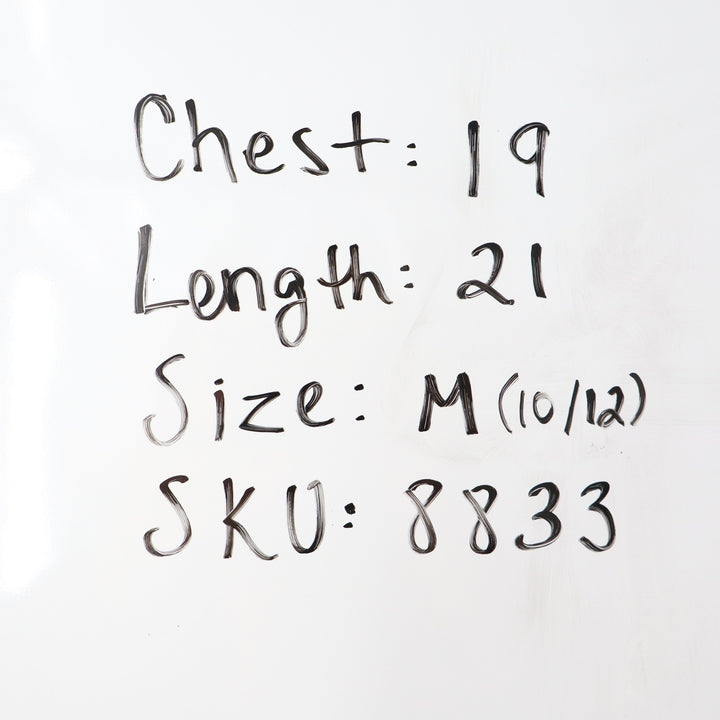 Chest: 19
Length: 21
Size: M (10/12)
SKU: 8833